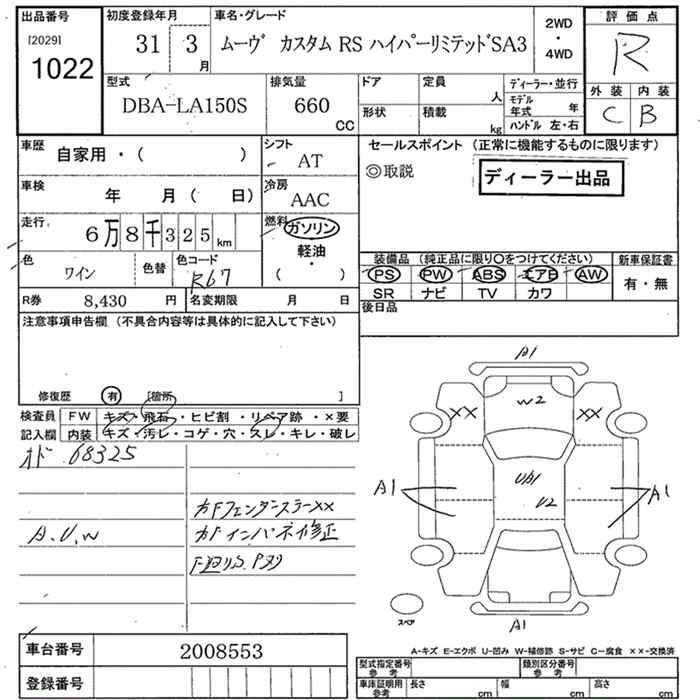 出品番号
[2029]
1022
初度登録年月
31 3月
車名・グレード
ムーヴ カスタム RS ハイパーリミテッドSA3
2WD
・
4WD
評価点
R
外装 内装
C B
型式
DBA-LA150S
排気量
660
CC
ドア
形状
定員
人
積載
kg
ディーラー・並行
モデル年式 年
ハンドル 左・右
車歴
自家用・( )
シフト
AT
車検
年 月( 日)
冷房
AAC
走行
6万8千325km
燃料
ガソリン
軽油
・
( )
色
ワイン
色替
色コード
R67
R券 8,430 円
名変期限 月 日
セールスポイント (正常に機能するものに限ります)
◎取説
ディーラー出品
装備品 (純正品に限り○をつけてください)
新車保証書
PS PW ABS エアB AW
SR ナビ TV カワ
有・無
後日品
注意事項申告欄 (不具合内容等は具体的に記入して下さい)
修復歴 有 [箇所 ]
検査員
記入欄
FW キズ・飛石・ヒビ割・リペア跡・×要
内装 キズ・汚レ・コゲ・穴・スレ・キレ・破レ
オド 68325
カFフェンダステーXX
A.U.W
カFインパネ修正
A1
W2
XX
XX
Ub1
U2
A1
A1
A1
スペア
A-キズ E-エクボ U-凹み W-補修跡 S-サビ C-腐食 ××-交換済
車台番号 2008553
登録番号
型式指定番号
参考
類別区分番号
参考
車庫証明用
参考
長さ cm
幅 cm
高さ cm